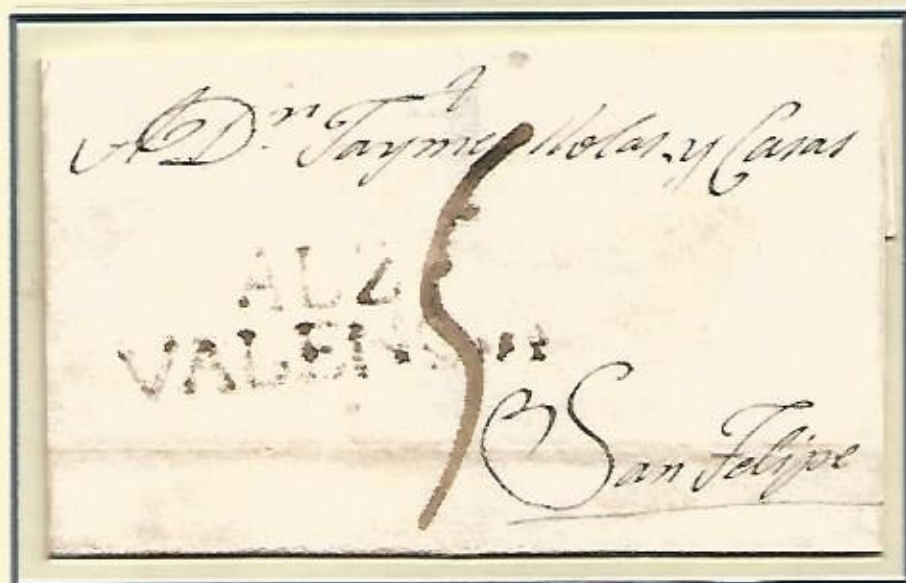 A Dn. Jayme Molas y Casas
5
ALZ
VALENCIA
San Felipe